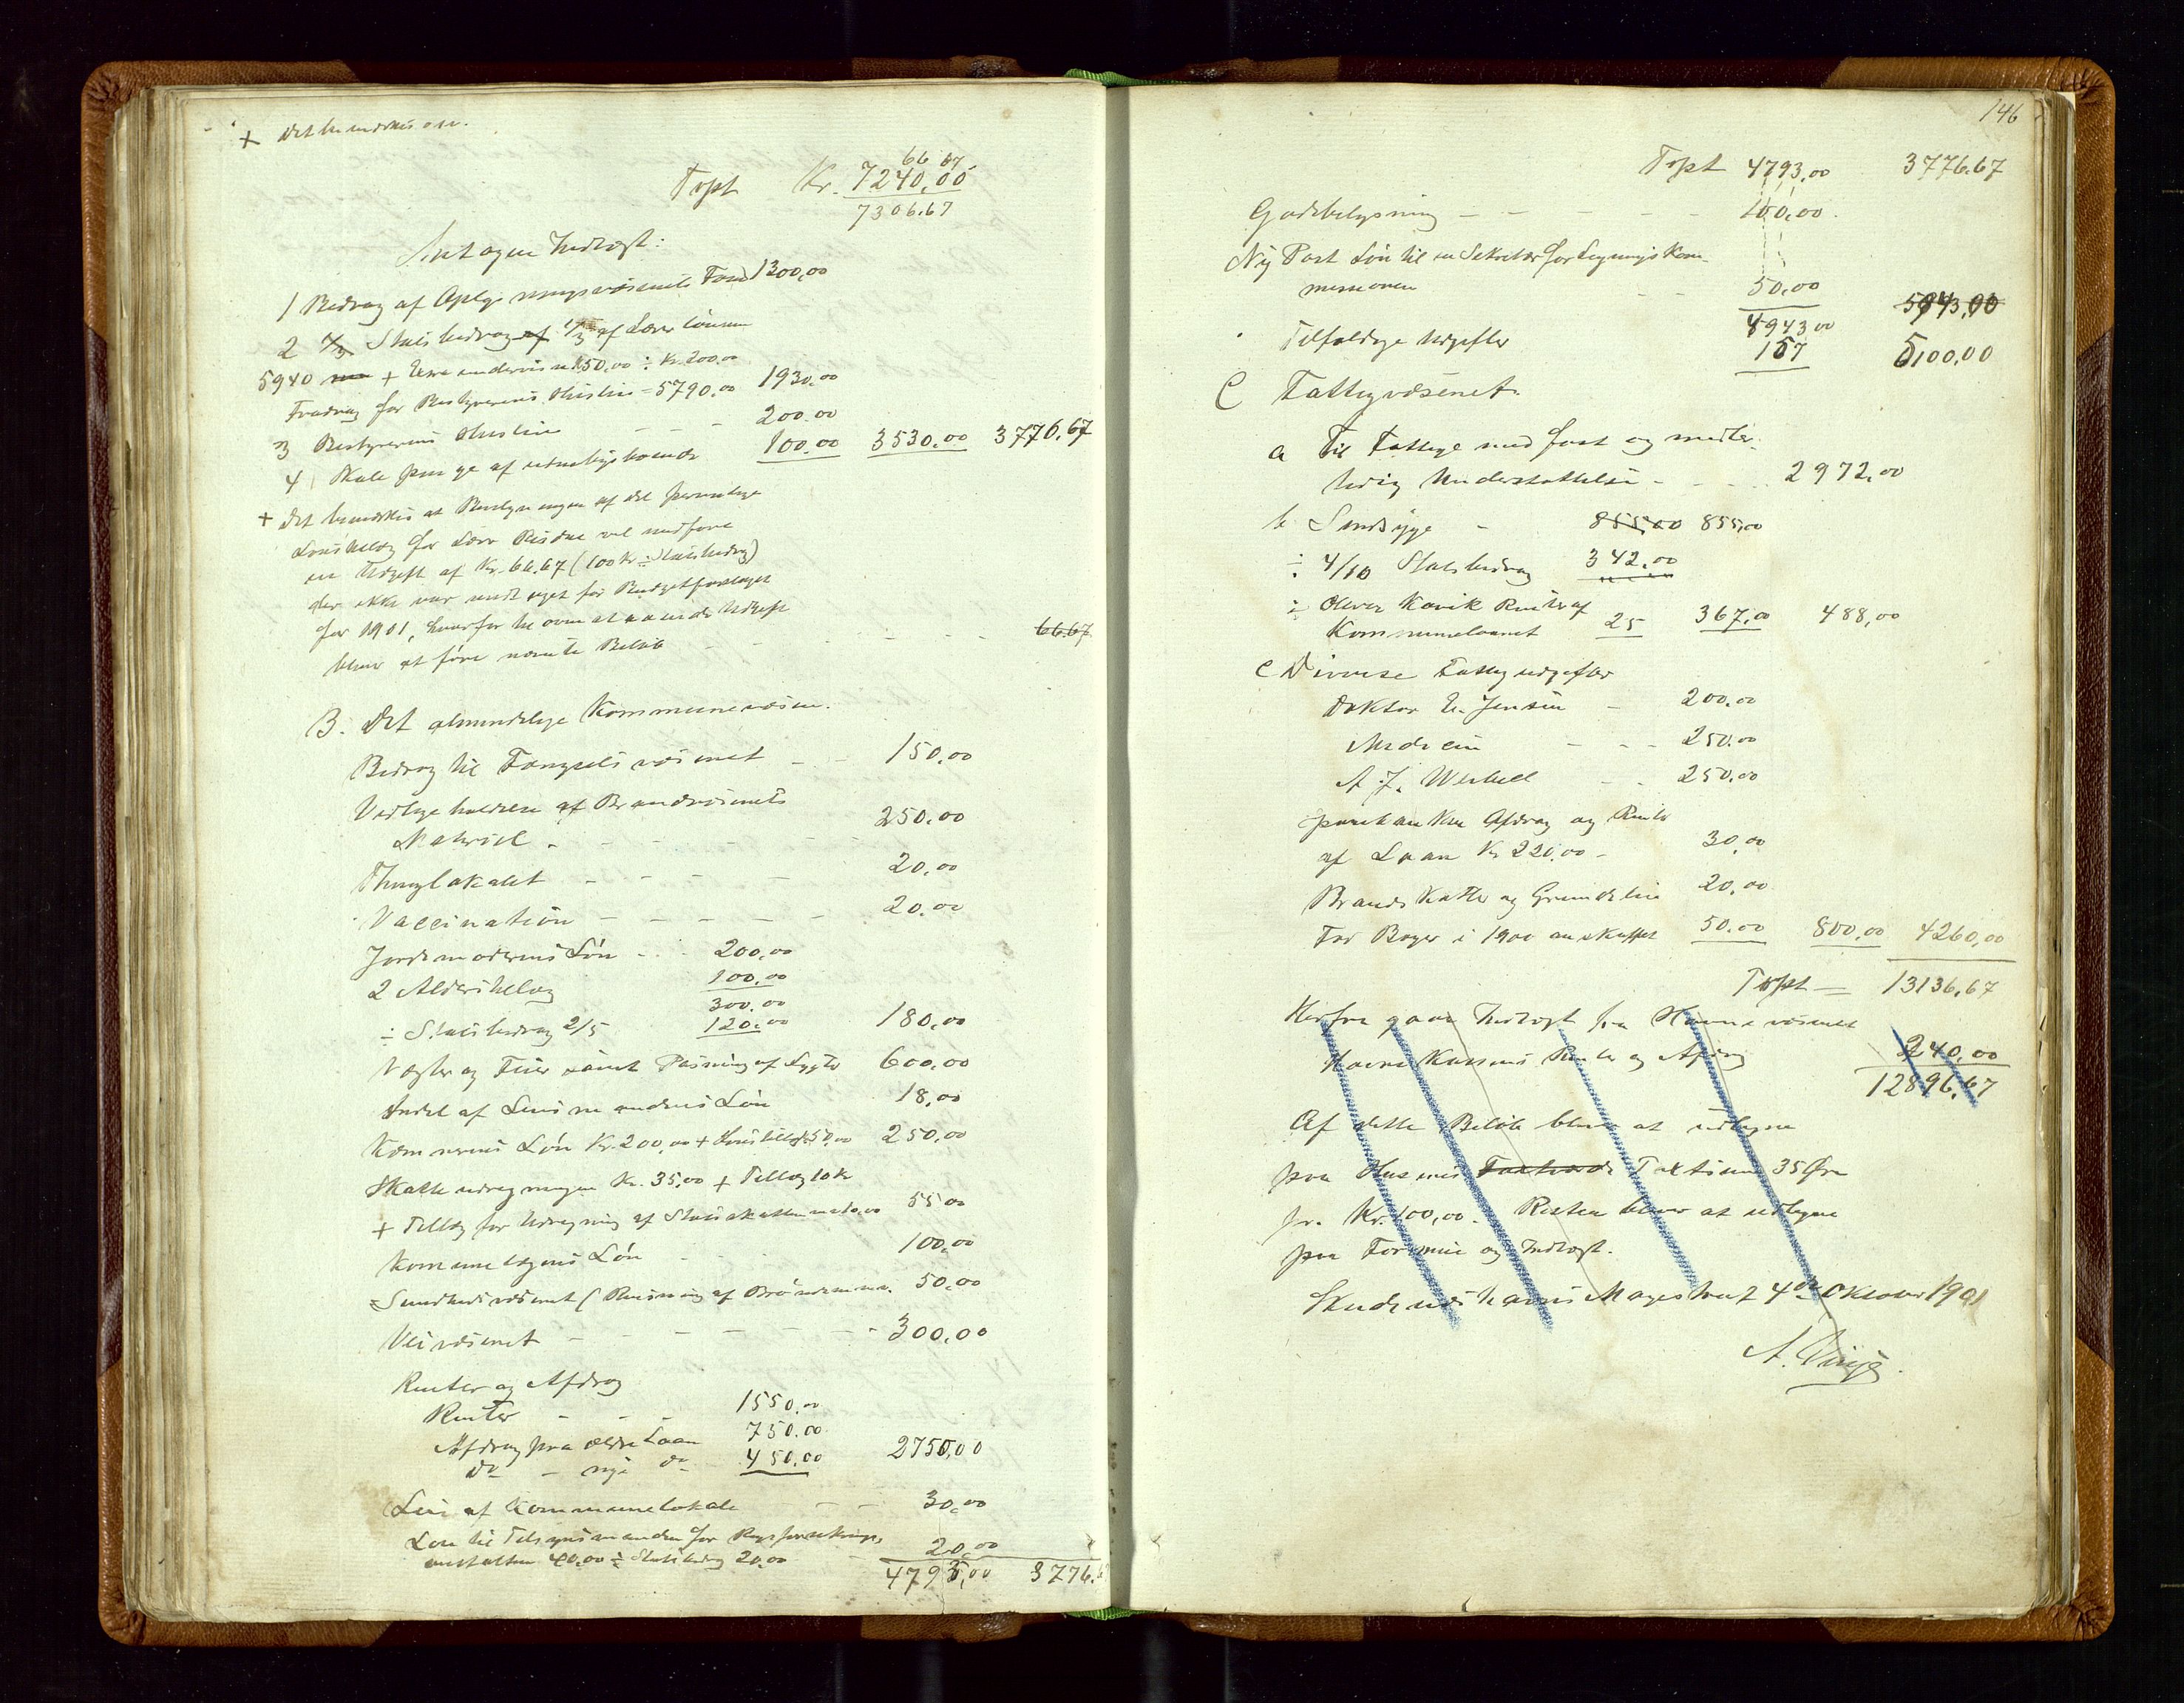 + Det bemærkes osv.
66 67
Tpst Kr. 7240,00
7306.67
Antagen Indtægt:
1 Bidrag af Oplysningsvæsenets Fond 1300,00
2 Statsbidrag af 1/3 af Lærerlønnen
5940 + Extraundervisn. 50.00 ÷ Kr. 200.00
Fradrag for Bestyrerens Husleie = 5790.00 1930.00
3 Bestyrerens Husleie - - - 200.00
4 Skolepenge af udenbysboende 100.00 3530.00 3776.67
+ Det bemærkes at Bevilgningen af det personlige
Lønstillæg for Lærer vil medføre
en Udgift af Kr. 66.67 (100 Kr ÷ Statsbidrag)
der ikke var medtaget for Budgetforslaget
for 1901, hvorfor til ovenstaaende Udgift
bliver at føre nævnte Beløb - - - - - 66.67
B. Det almindelige Kommunevæsen.
Bidrag til Fængselsvæsenet - - 150.00
Vedligeholdelse af Brandvæsenets
Materiel. - - - - - 250.00
Thinglokalet - - - - 20.00
Vaccination - - - - - - 20.00
Jordemoderens Løn - - 200.00
2 Alderstillæg 100.00
300.00
÷ Statsbidrag 2/5 120.00 180.00
Vægter og Feier samt Pasning af Lygter 600.00
Andel af Lensmandens Løn 18.00
Kæmnerens Løn Kr. 200,00 + Lønstillæg 50,00 250.00
Skatteudregningen Kr. 35,00 + Tillæg 10 Kr
+ Tillæg for Udregning af Statsskatten med 10.00 55.00
Kommunelægens Løn - 100.00
Sundhedsvæsenet (Rensning af Brøndene m.m. 50.00
Veivæsenet - - - - - - - 300.00
Renter og Afdrag
Renter - - - 1550.00
Afdrag paa ældre Laan 750.00
do - nye do 450.00 2750,00
Leie af Kommunelokale - - 30.00
Løn til Tilsynsmanden for Rigsforsikrings-
anstalten 40.00 ÷ Statsbidrag 20.00 20.00
4793,00 3776.6
146
Tpst 4793.00 3776.67
Gadebelysning - - - - - 100.00.
Ny Post Løn til en Sekretær for Ligningskom-
missionen - - 50.00
4943 00 5943,00
Tilfældige Udgifter 157 5100.00
C Fattigvæsenet.
a Til Fattige med fast og midler-
tidig Understøttelse - - - - 2972.00
b Sindssyge - 855.00 855.00
÷ 4/10 Statsbidrag 342.00
÷ Renter af
Kommunelaanet 25 367.00 488,00
c Diverse Fattigudgifter
Doktor E. Jensen - 200.00
Medicin - - - 250.00
A. J. - - 250.00
Sparebanken Afdrag og Renter
af Laan Kr 220.00 - 30.00
Brandskatter og Grundleie 20.00
For Bøger i 1900 anskaffet 50.00 800.00 4260,00
Tpst = 13136.67
Herfra gaar Indtægt fra Havnevæsenet
Havnekassens Renter og Afdrag 240,00
12896.67
Af dette Beløb bliver at udligne
paa Husenes Taxtsum 35 Øre
pr. Kr. 100,00. Resten bliver at udligne
paa Formue og Indtægt.
Skudesneshavns Magistrat 4de Oktober 1901